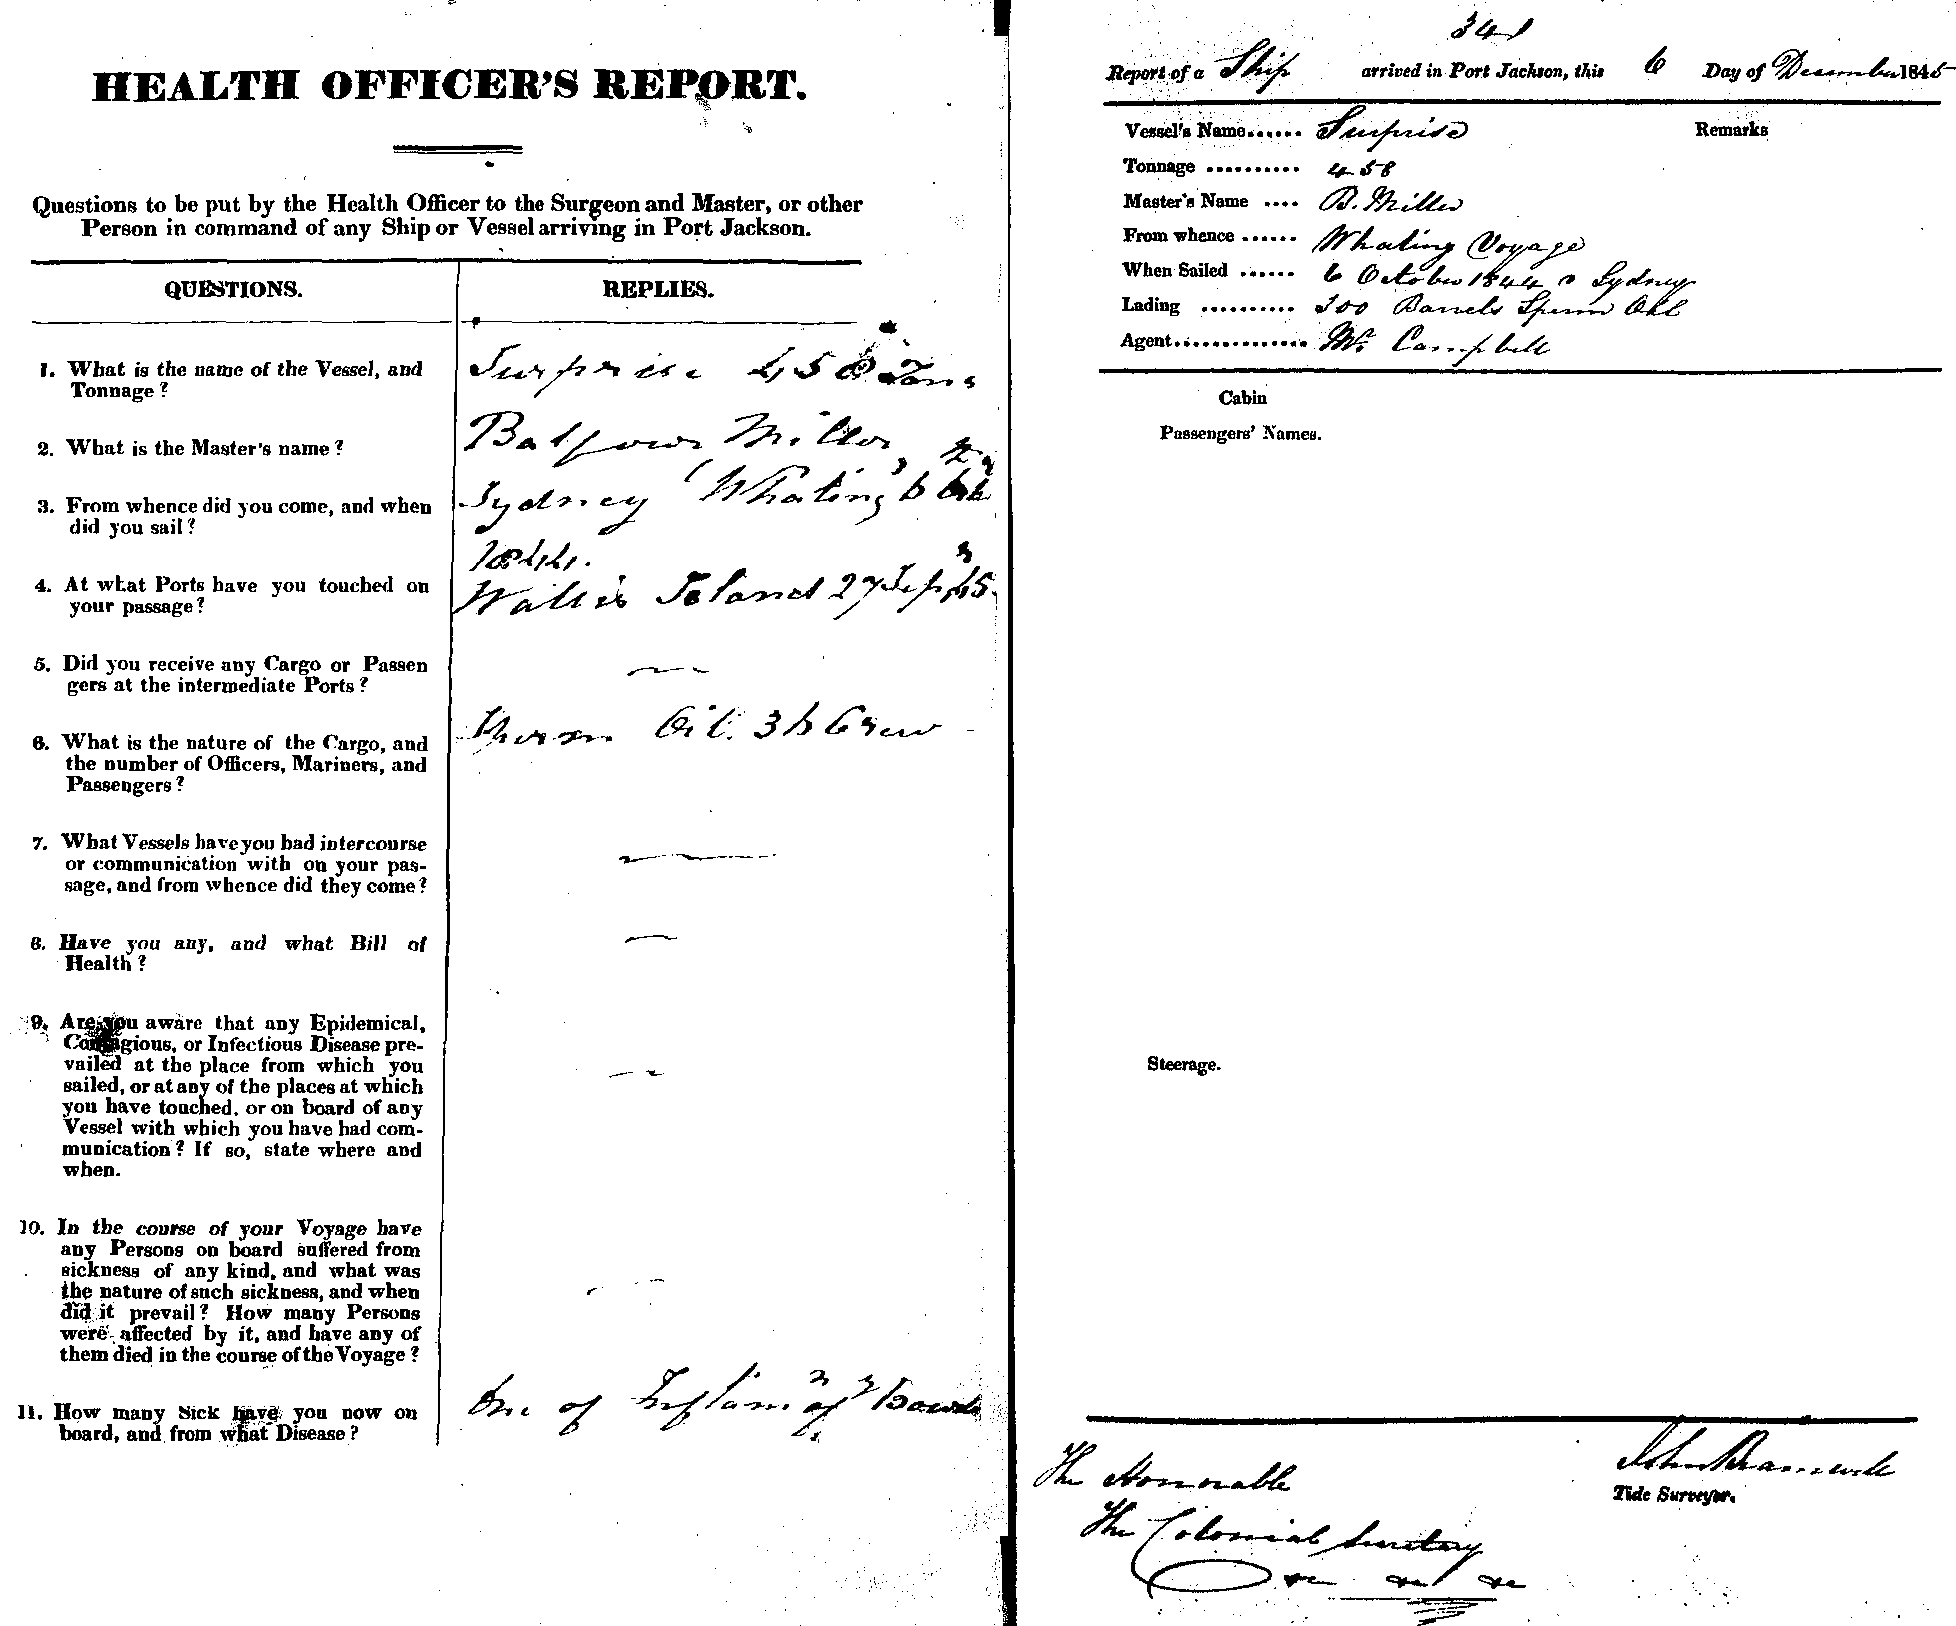 HEALTH OFFICER'S REPORT.
Questions to be put by the Health Officer to the Surgeon and Master, or other
Person in command of any Ship or Vessel arriving in Port Jackson.
QUESTIONS. REPLIES.
1. What is the name of the Vessel, and
Tonnage?
Surprise 458 Tons
2. What is the Master's name?
Balfour Miller
3. From whence did you come, and when
did you sail?
Sydney 'Whaling' 6 Oct
1844.
4. At what Ports have you touched on
your passage?
Wallis Island 27 Sep 45.
5. Did you receive any Cargo or Passen
gers at the intermediate Ports?
6. What is the nature of the Cargo, and
the number of Officers, Mariners, and
Passengers?
Sperm Oil. 36 Crew
7. What Vessels have you had intercourse
or communication with on your pas-
sage, and from whence did they come?
8. Have you any, and what Bill of
Health?
9. Are you aware that any Epidemical,
Contagious, or Infectious Disease pre-
vailed at the place from which you
sailed, or at any of the places at which
you have touched, or on board of any
Vessel with which you have had com-
munication? If so, state where and
when.
10. In the course of your Voyage have
any Persons on board suffered from
sickness of any kind, and what was
the nature of such sickness, and when
did it prevail? How many Persons
were affected by it, and have any of
them died in the course of the Voyage?
11. How many Sick have you now on
board, and from what Disease?
One of Inflamn of Bowels
341
Report of a Ship arrived in Port Jackson, this 6 Day of December 1845
Vessel's Name...... Surprise Remarks
Tonnage .......... 458
Master's Name .... B. Miller
From whence ...... Whaling Voyage
When Sailed ...... 6 October 1844 Sydney
Lading .......... 300 Barrels Sperm Oil
Agent.............. Mr. Campbell
Cabin
Passengers' Names.
Steerage.
John Bramwell
Tide Surveyor.
The Honorable
The Colonial Secretary
&c &c &c